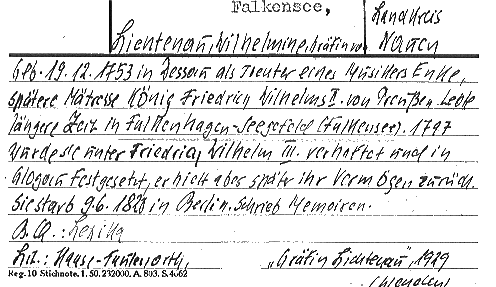 Falkensee,
Landkreis
Lichtenau, Wilhelmine, Gräfin v.
Nauen
Geb. 19.12.1753 in Dessau als Tochter eines Musikers Enke,
spätere Mätresse König Friedrich Wilhelms II. von Preußen. Lebte
längere Zeit in Falkenhagen-Seegefeld (Falkensee). 1797
wurde sie unter Friedrich Wilhelm III. verhaftet und in
Glogau festgesetzt, erhielt aber später ihr Vermögen zurück.
Sie starb 9.6.1820 in Berlin. Schrieb Memoiren.
B.Q.:
Lit.: "Gräfin Lichtenau", 1919
Reg. 10 Stichnote. 1. 50. 232000. A. 803. S. 4062